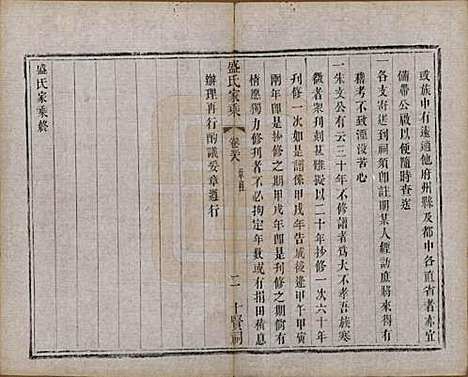 或族中有遠適他府州縣及都中各直省者亦宜
備帶公啟以便隨時查送
一各支寄送到祠須卽註明某人經訪庶將來得有
稽考不致湮沒苦心
一朱文公有云三十年不修譜者爲大不孝吾族寒
微者衆刋刻甚難擬以二十年抄修一次六十年
刋修一次如是譜係甲戌年告成後逢甲午甲寅
兩年卽是抄修之期甲戌年卽是刋修之期倘有
捐田積息
情慇獨力修刋者不必拘定年數或有
辦理再行酌議妥章遵行
盛氏家乘
卷
二
十賢祠
盛氏家乘終